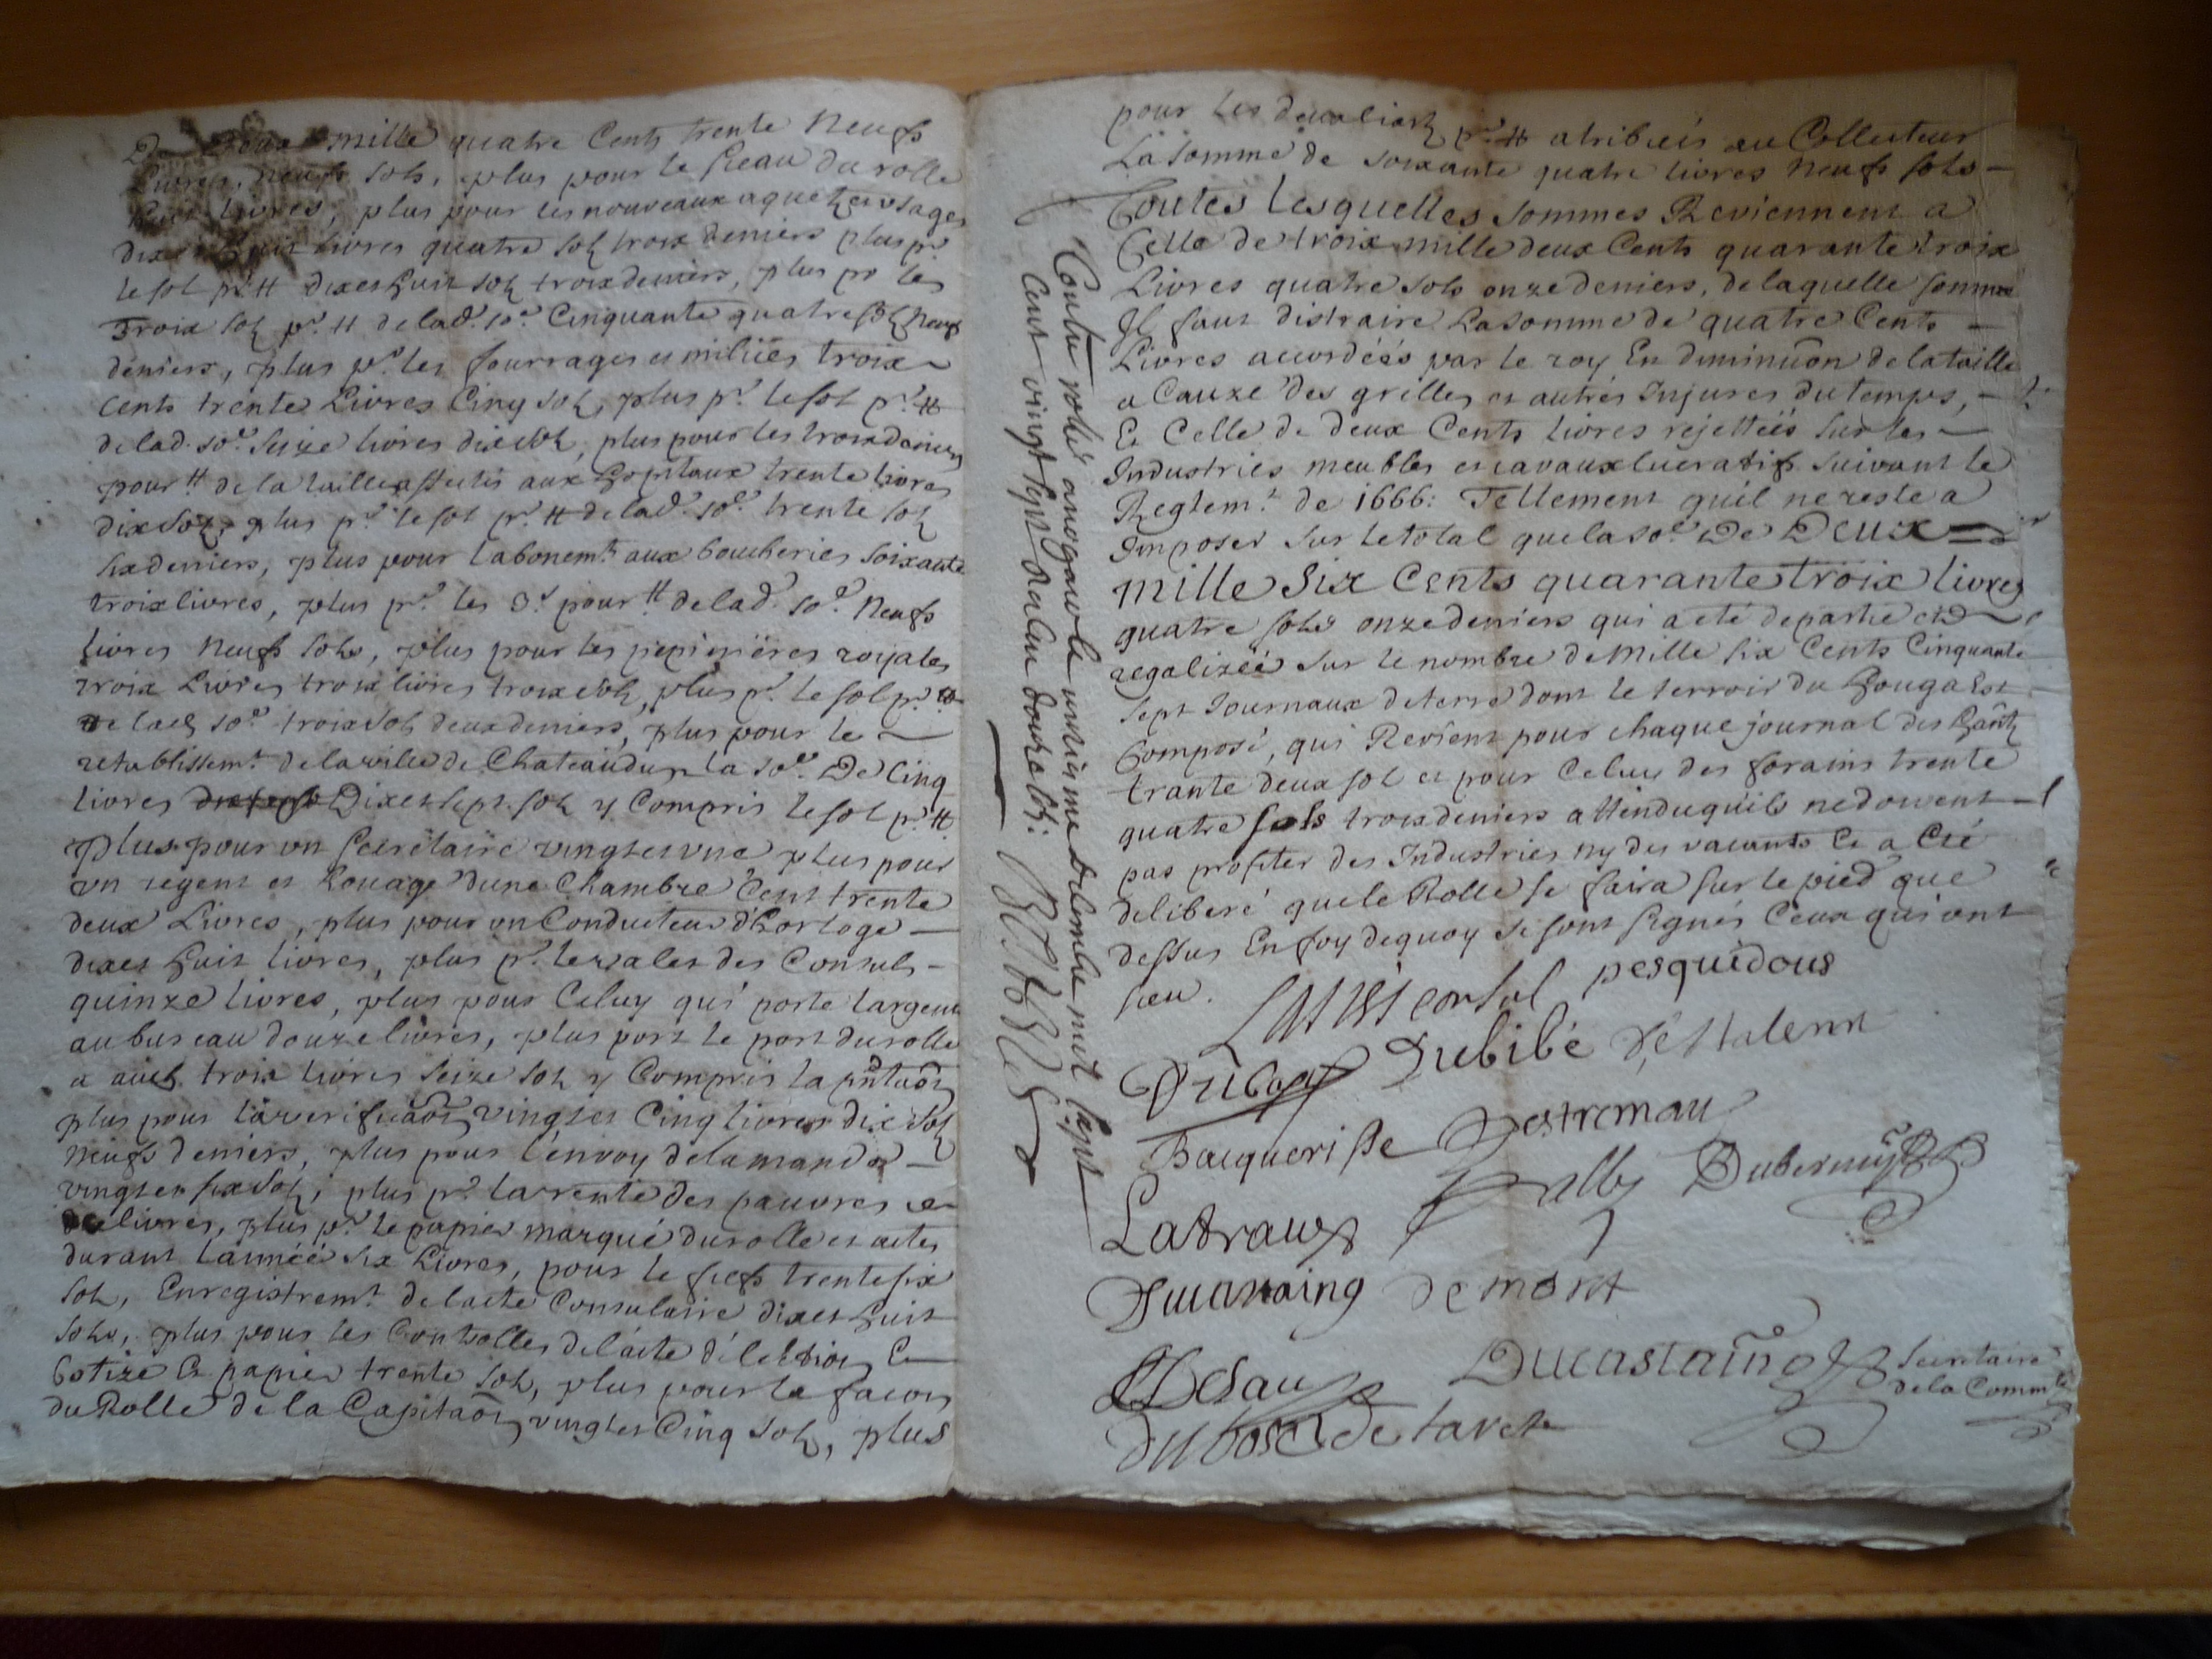 De Deux mille quatre Cents trente Neufs
Livres, neufs sols, plus pour le sceau du rolle
huit livres, plus pour les nouveaux aquets et usages
dix et huit livres quatre sols trois deniers plus pr
le sol pr tt dix et huit sols trois deniers, plus pr les
trois sols pr. tt de lad. so.e Cinquante quatre sols neufs
deniers, plus pr. les fourrages et milices trois
cents trente Livres Cinq sols, plus pr. le sol pr. tt
de lad. so.e seize livres dix sols, plus pour les trois deniers
pour tt de la taille affectés aux hopitaux trente livres
dix sols, plus pr. le sol pr. tt de lad.e so.e trente sols
six deniers, plus pour l'abonemt. aux boucheries soixante
trois livres, plus pr. les 3.d pour tt de lad. so.e Neufs
livres neufs sols, plus pour les pepinieres royales
trois Livres trois livres trois sols, plus pr. le sol pr. tt
de lad. so.e trois sols deux deniers, plus pour le
retablissemt. de la ville de Chateaudun la so.e De Cinq
livres Dix et sept sols y Compris le sol pr. tt
Plus pour un Secretaire vingt et une plus pour
un regent et Louage d'une Chambre Cent trente
deux Livres, plus pour un Conducteur d'horloge
dix et huit livres, plus pr. le valet des Consuls
quinze livres, plus pour Celuy qui porte l'argent
au bureau douze livres, plus port le port du rolle
a auch trois livres seize sols y Compris la
plus pour la verificaon vingt et Cinq livres dix sols
neufs deniers, plus pour l'envoy de la mande
vingt et six sols, plus pr. la rente des pauvres
livres, plus pr. le papier marqué du rolle et actes
durant l'année six Livres, pour le fiefs trente six
sols, Enregistremt. de l'acte Consulaire dix et huit
sols, plus pour les Controlles de l'acte d'élection, Ce
Cotize et papier trente sols, plus pour la facon
du Rolle de la Capitaon vingt et Cinq sols, plus
pour les deniers pr. tt atribués au Collecteur
La somme de soixante quatre livres neufs sols
Toutes Lesquelles sommes Reviennent a
Celle de trois mille deux Cents quarante trois
Livres quatre sols onze deniers, de laquelle somme
Il faut distraire La somme de quatre Cents
Livres accordéés par le roy En diminuon de la taille
a Cauze des grilles et autres Injures du temps,
Et Celle de deux Cents livres rejettéés sur les
Industries meubles et cavaux lucratifs suivant le
Reglemt. de 1666: Tellement qu'il ne reste a
Imposer sur le total que la so.e De Deux
mille Six Cents quarante trois livres
quatre sols onze deniers qui a eté departie et
regalizéé sur le nombre de mille six Cents Cinquante
sept Journaux de terre dont le terroir du houga Est
Composé, qui Revient pour chaque journal des hānts
trante deux sol et pour Celuy des forains trente
quatre sols trois deniers attendu qu'ils ne doivent
pas profiter des Industries ny des vacants Ce a Eté
deliberé que le Rolle se faira sur le pied que
dessus En foy de quoy se sont signés Ceux qui ont
sceu.
consul pesquidous
Dubibé
Bacquerisse Destremau
Dalby
Latraux
demont
Ducastaing Secretaire
de la Commté
Controllé a nogaro le unsieme decembre mil sept
cent vingt sept Reçeu douze sols: